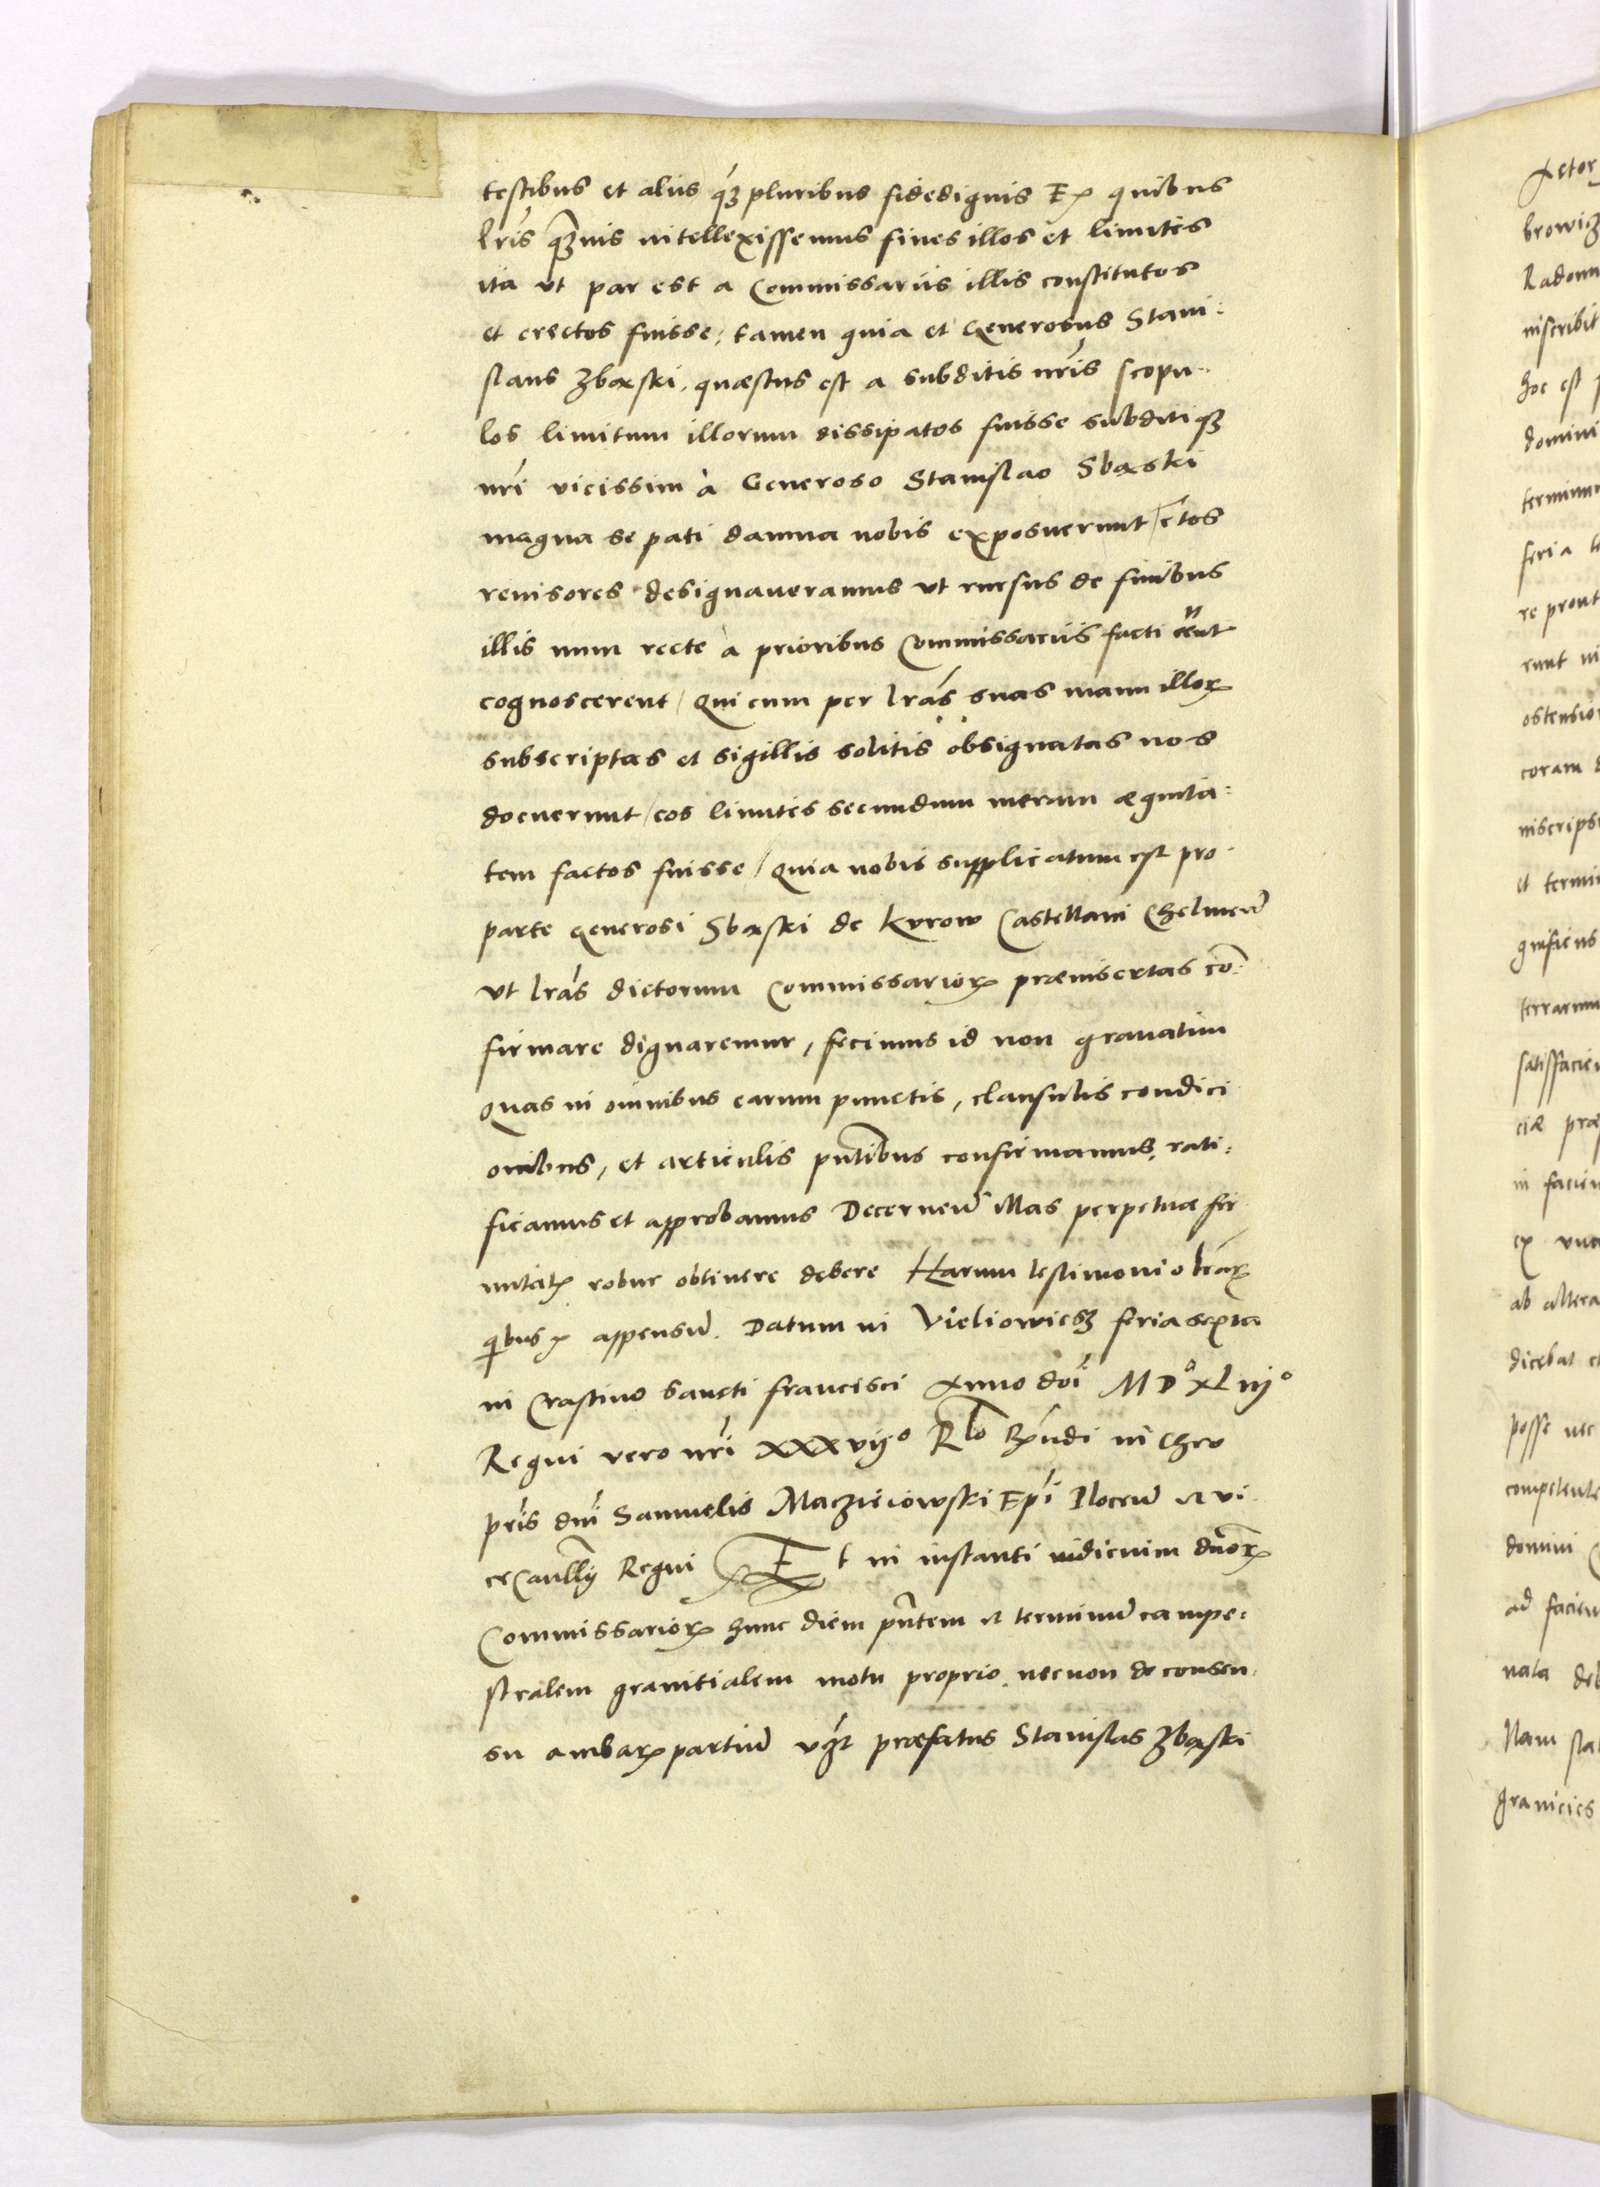 testibus et aliis q̃ꝫ pluribus fidedignis Ex quibus
lr̃is q̃ꝫuis intellexissemus fines illos et limites
ita vt par est a Commissariis illis constitutos
et erectos fuisse, tamen quia et Generosus Stani:
slaus Zbąski, quæstus est a subditis nr̃is scopu:
los limitum illorum dissipatos fuisse subditiqꝫ
nr̃i vicissim à Generoso Stanislao Sbąski
magna se pati damna nobis exposuerunt / c̃tos
reuisores designaueramus vt rursus de finibus
illis num recte a prioribus Commissariis facti
cognoscerent / Qui cum per lr̃as suas manu illoꝝ
subscriptas et sigillis solitis obsignatas nos
docuerunt / eos limites secundum meram æquita:
tem factos fuisse / Quia nobis supplicatum est pro
parte Generosi Sbąski de Kurow Castellani Chelmeñ
vt lr̃as dictorum Commissarioꝝ præinsertas cõ:
firmare dignaremur, fecimus id non grauatim
Quas in omnibus earum punctis, clausulis condici
onibus, et articulis pñtibus confirmamus, rati:
ficamus et approbamus Decerneñ illas perpetuæ fir
mitatꝭ robur obtinere debere Harum testimonio lr̃aꝝ
qibus ꝛ appensuꝫ. Datum in Vieliowiesz feria sexta
in Crastino Sancti Francisci Anno doĩ MD°XLiij°
Regni vero nr̃i xxxvij° Rl̃o Rñdi in Chr̃o
pr̃is dnĩ Samuelis Macziẽiowski Ep̃i Ploceñ et Vi
ceCancll̃ij Regni Et in instanti iudicium dñoꝝ
Commissarioꝝ hunc diem pñtem et terminũ campe:
stralem granitialem motu proprio, necnon de consen:
su ambaꝝ partiũ præfatus Stanislas Zbąski
Actor
browicz
Radom
inscribit
hoc est
domini
terminu
feria
re prout
runt
ostension
coram
inscrips
et termi
gnificus
terrarum
satisfacien
ciæ præ
in facien
ex vna
ab altera
dicebat
posse nec
competente
domini
ad facien
nata deb
Nam sta
granicies